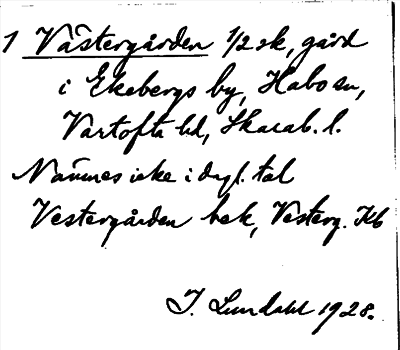 1 Västergården 1/2 sk, gård
i Ekebergs by, Habo sn,
Vartofta hd, Skarab. l.
Nämnes icke i dagl. tal
Vestergården bek, Vesterg. Kb
J. Lundahl 1928.